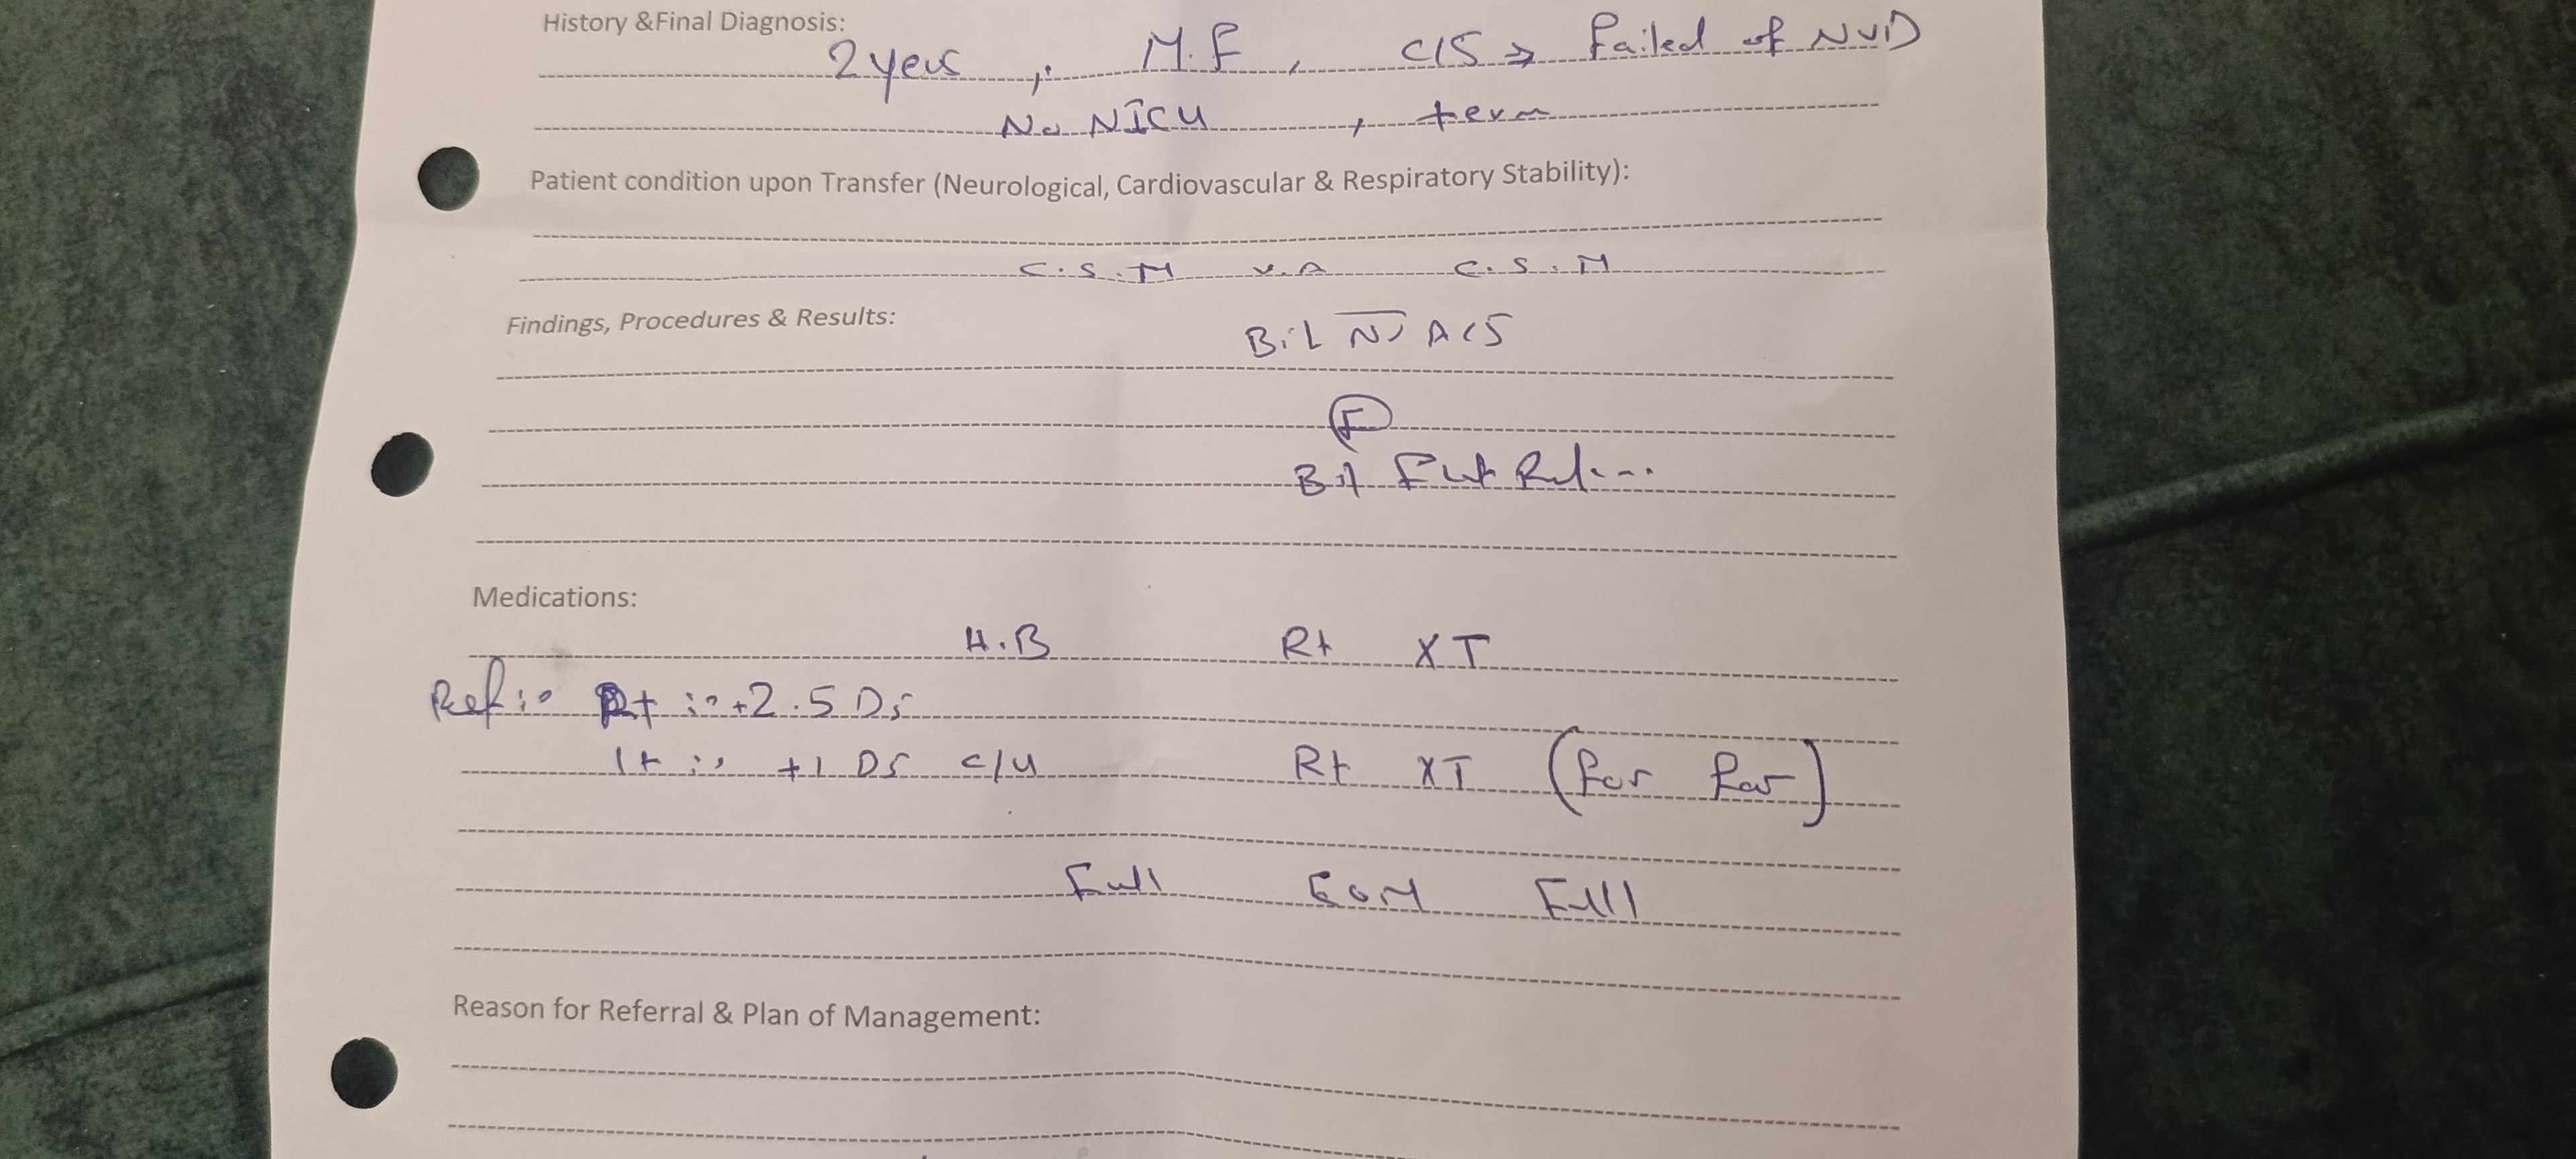 History &Final Diagnosis:
2 yeus , M.F , C/S → Failed of NVD
No NICU , term
Patient condition upon Transfer (Neurological, Cardiovascular & Respiratory Stability):
C.S.M V.A C.S.M
Findings, Procedures & Results:
Bil N A/S
F
Bil
Medications:
H.B Rt XT
Ref:- Rt :- +2.5 Ds
lt :- +1 Ds c/u Rt XT (for far)
Full EOM Full
Reason for Referral & Plan of Management: